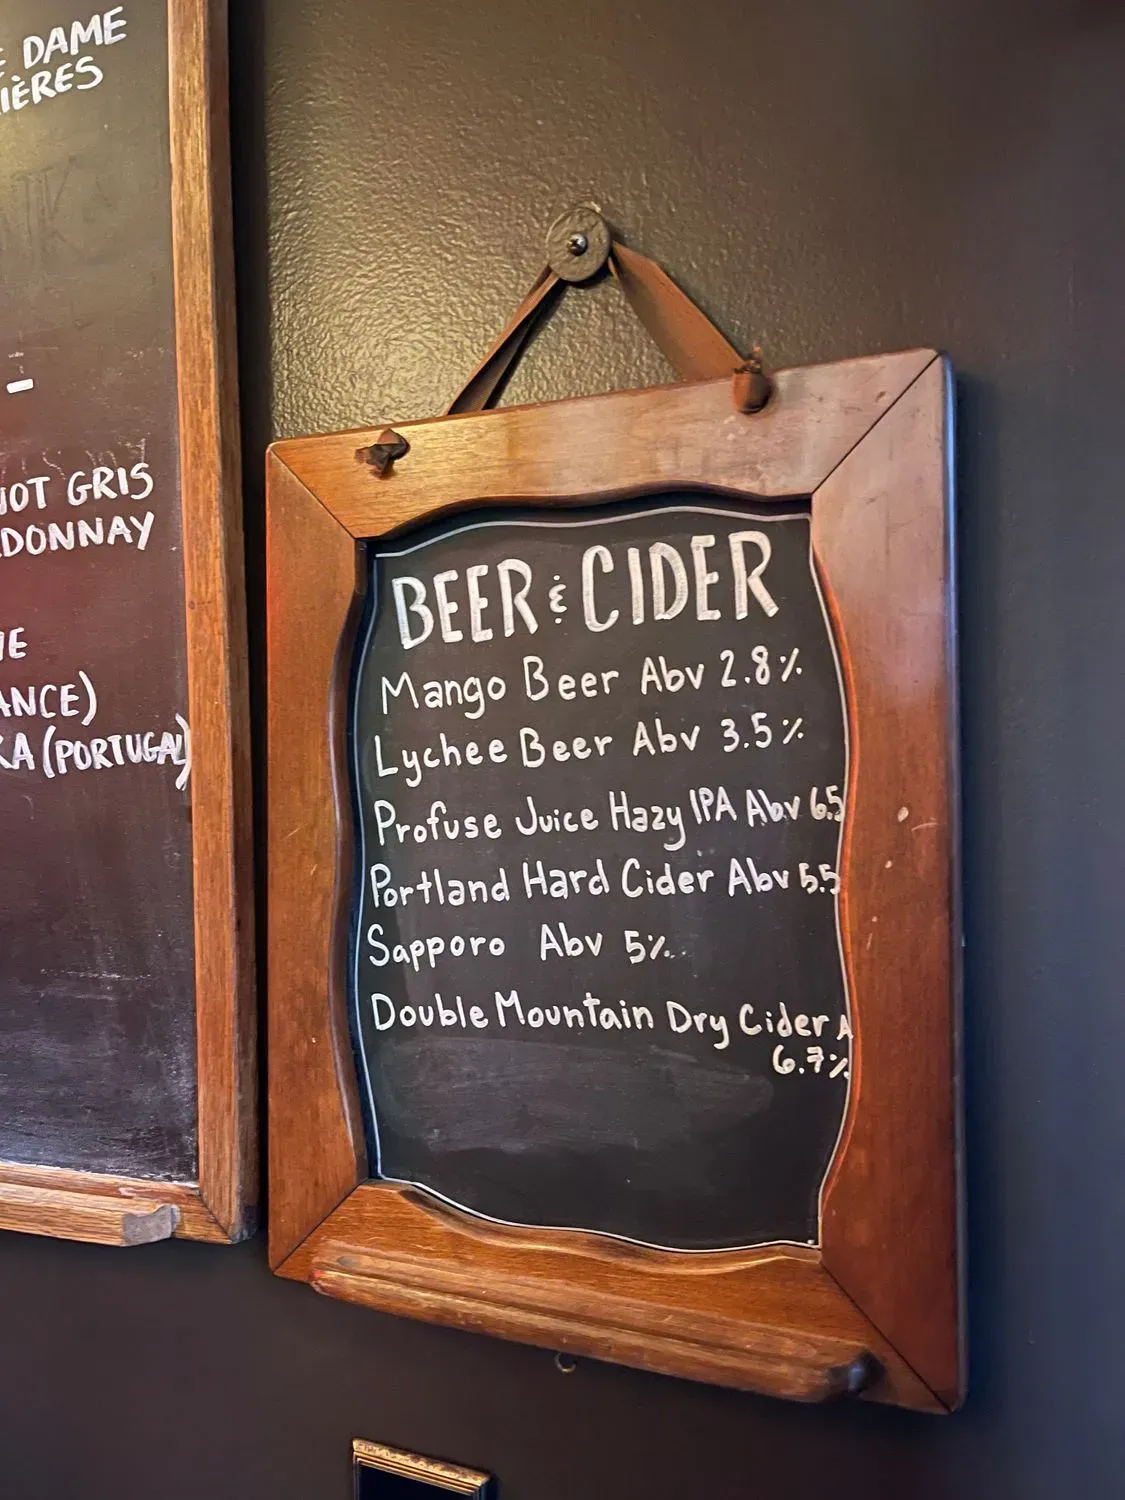 DAME
IÈRES
OT GRIS
DONNAY
E
ANCE)
KA (PORTUGAL)
BEER & CIDER
Mango Beer Abv 2.8%
Lychee Beer Abv 3.5%
Profuse Juice Hazy IPA Abv 6.5
Portland Hard Cider Abv 5.5
Sapporo Abv 5%
Double Mountain Dry Cider A
6.7%